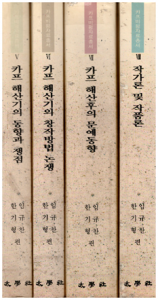 Ⅴ
카프 해산기의 동향과 쟁점
임규찬
한기형 편
太學社
Ⅵ
카프 해산기의 창작방법 논쟁
임규찬
한기형 편
太學社
Ⅶ
카프 해산후의 문예동향
임규찬
한기형 편
太學社
Ⅷ
작가론 및 작품론
임규찬
한기형 편
太學社